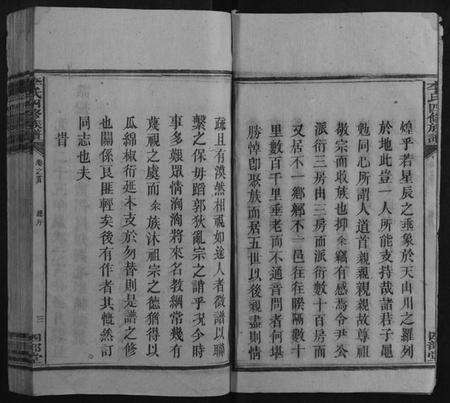 李氏四修族譜
煌乎若星辰之垂象於天山川之羅列
於地此豈一人所能支持哉諸君子黽
勉同心所謂人道首親親親親故尊祖
敬宗而收族也抑桒竊有感焉令尹公
派衍三房由三房而派衍數十百房而
又居不一鄉鄉不一邑往在睽隔數十
里數百千里垂老而不通音問者何堪
勝悼卽聚族而居五世以後親盡則情
疏且有漠然相視如途人者微譜以聯
繫之保毋蹈郭狄亂宗之誚乎況今時
事多艱眾情洶洶將來名教綱常幾有
蔑視之處而桒族沐祖宗之德猶得以
瓜綿椒衍延本支於勿替則是譜之修
也關係良匪輕矣後有作者其慨然訂
同志也夫
昔
李氏四修族譜
卷之首
三